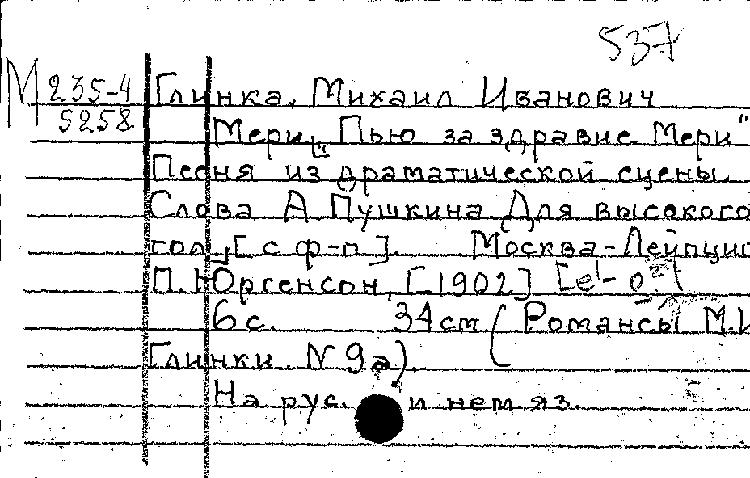 537
М 235-4 Глинка, Михаил Иванович
5258 Мери ["Пью за здравие Мери"
Песня из драматической сцены.
Слова А Пушкина Для высокого
гол. [с ф-п]. Москва-Лейпциг
П. Юргенсон, [1902]
6 с. 34 см (Романсы М.И
Глинки N 9а).
На рус. и нем яз.